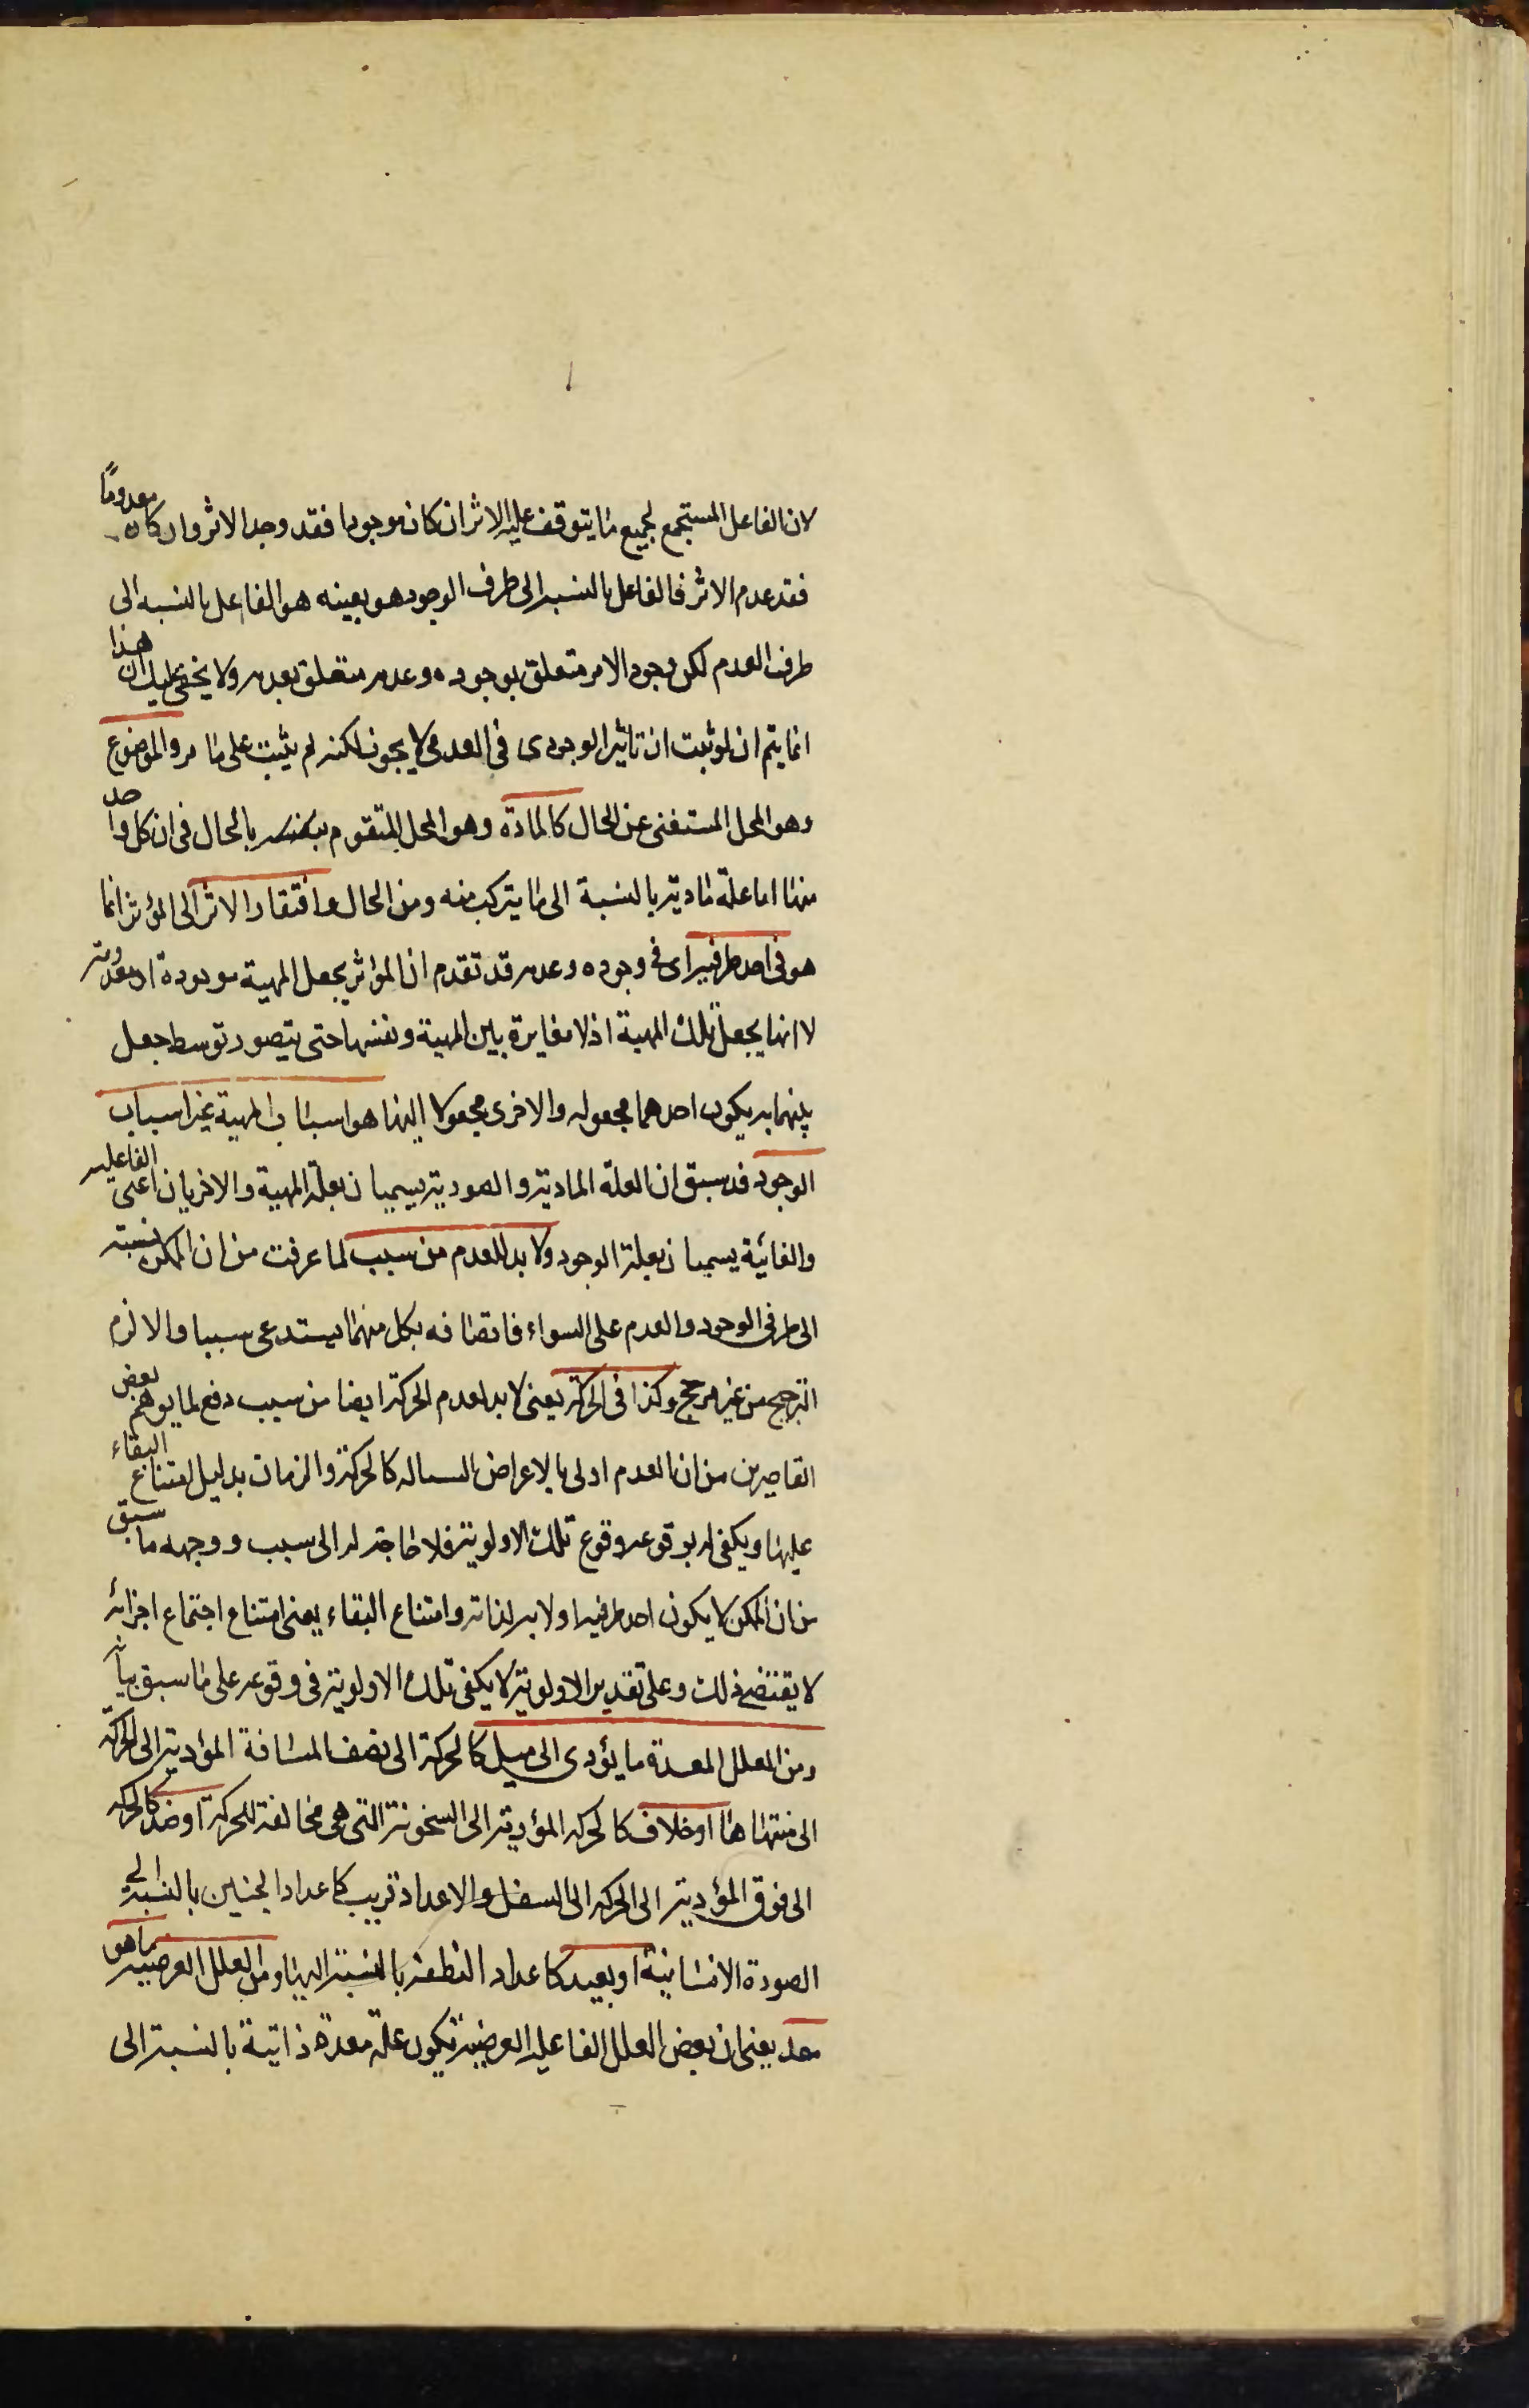 لان الفاعل المستجمع لجميع ما يتوقف عليه الاثر ان كان موجودا فقد وجد الاثر وان كان معدومًا
فقد عدم الاثر فالفاعل بالنسبة الى طرف الوجود هو بعينه هو الفاعل بالنسبه الى
طرف العدم لكن وجود الامر متعلق بوجوده وعدمه متعلق بعدمه ولا يخفى عليك ان هذا
انما يتم ان لو ثبت ان تاثير الوجودى فى العدمى لا يجوز لكنه لم يثبت على ما مر والموضوع
وهو المحل المستغنى عن الحال كالمادة وهو المحل المتقوم بالحال فى ان كل واحد
منهما اما علة مادية بالنسبة الى ما يتركب منه ومن الحال وافتقار الاثر الى المؤثر انما
هو فى احد طرفيه اى فى وجوده وعدمه قد تقدم ان المؤاثر يجعل المهية موجودة او معدومة
لا انها يجعل تلك المهية اذ لا مغايرة بين المهية ونفسها حتى يتصور توسط جعل
بينهما به يكون احدهما مجعوله والاخرى مجعولا اليها هو اسباب المهية غير اسباب
الوجود قد سبق ان العلة المادية والصورية يسميان بعلة المهية والاخريان اعنى الفاعلية
والغائية يسميان بعلة الوجود ولا بد للعدم من سبب لما عرفت من ان الممكن نسبته
الى طرفى الوجود والعدم على السواء فاتصافه بكل منهما يستدعى سببا والا لزم
الترجح من غير مرجح وكذا فى الحركة يعنى لا بد لعدم الحركة ايضا من سبب دفع لما يوهم بعض
القاصرين من ان العدم اولى بالاعراض السياله كالحركة والزمان بدليل امتناع البقاء
عليها ويكفى لوقوعه وقوع تلك الاولوية فلا حاجة له الى سبب ووجهه ما سبق
من ان الممكن لا يكون احد طرفيه اولا به لذاته وامتناع البقاء يعنى امتناع اجتماع اجزائه
لا يقتضى ذلك وعلى تقدير الاولوية لا يكفى تلك الاولوية فى وقوعه على ما سبق بيانه
ومن العلل المعدة ما يؤدى الى ميل كالحركة الى نصف المسافة المؤدية الى الحركة
الى منتهاها او خلاف كالحركه المؤدية الى السخونة التى هى مخالفة للحركة او ضد كالحركه
الى فوق المؤدية الى الحركه الى السفل والاعداد قريب كاعداد الجنين بالنسبة الى
الصورة الانسانية او بعيد كاعداد النطفة بالنسبة اليها ومن العلل العرضية ما هو
معد يعنى ان بعض العلل الفاعليه العرضية تكون علة معدة ذاتية بالنسبة الى